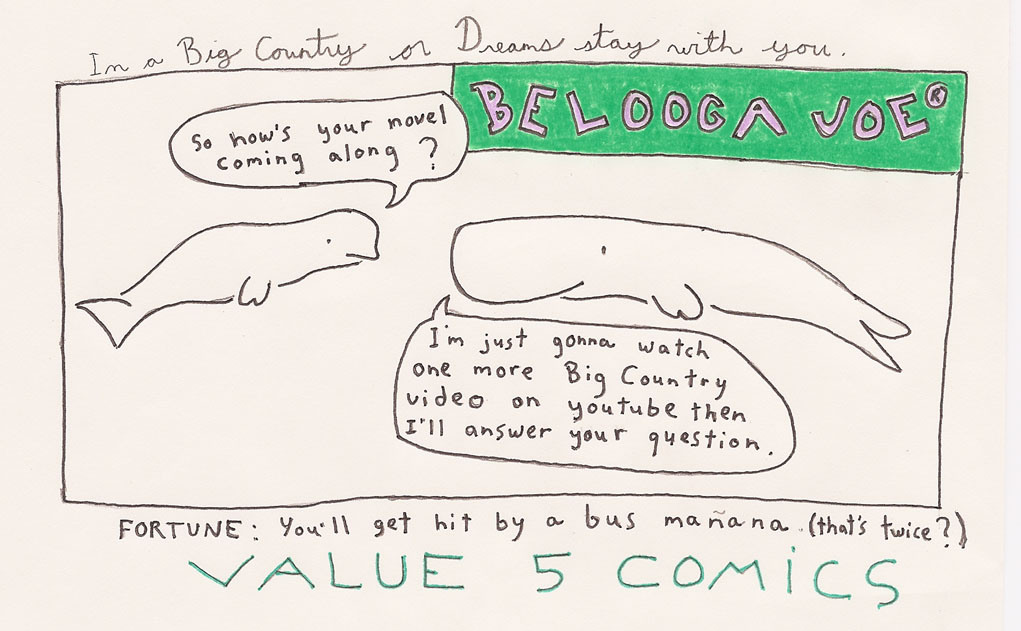 In a Big Country or Dreams stay with you.
BELOOGA JOE®
So how's your novel
coming along ?
I'm just gonna watch
one more Big Country
video on youtube then
I'll answer your question.
FORTUNE: You'll get hit by a bus mañana. (that's twice?)
VALUE 5 COMICS